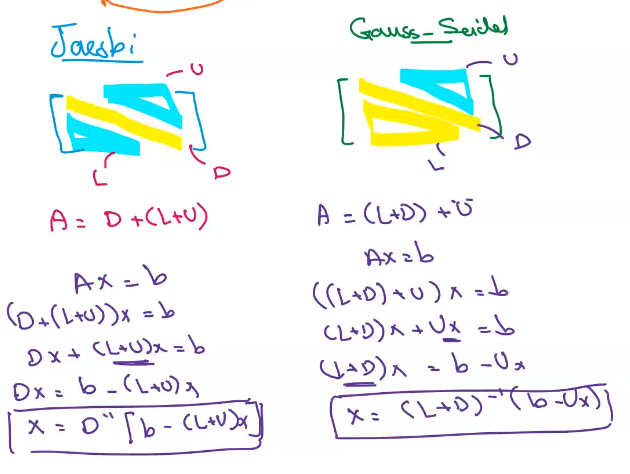 Jacobi
U
L
D
A = D + (L+U)
Ax = b
(D+(L+U))x = b
Dx + (L+U)x = b
Dx = b - (L+U)x
x = D⁻¹ [b - (L+U)x]
Gauss-Seidel
U
D
L
A = (L+D) + U
Ax = b
((L+D)+U)x = b
(L+D)x + Ux = b
(L+D)x = b - Ux
x = (L+D)⁻¹(b-Ux)